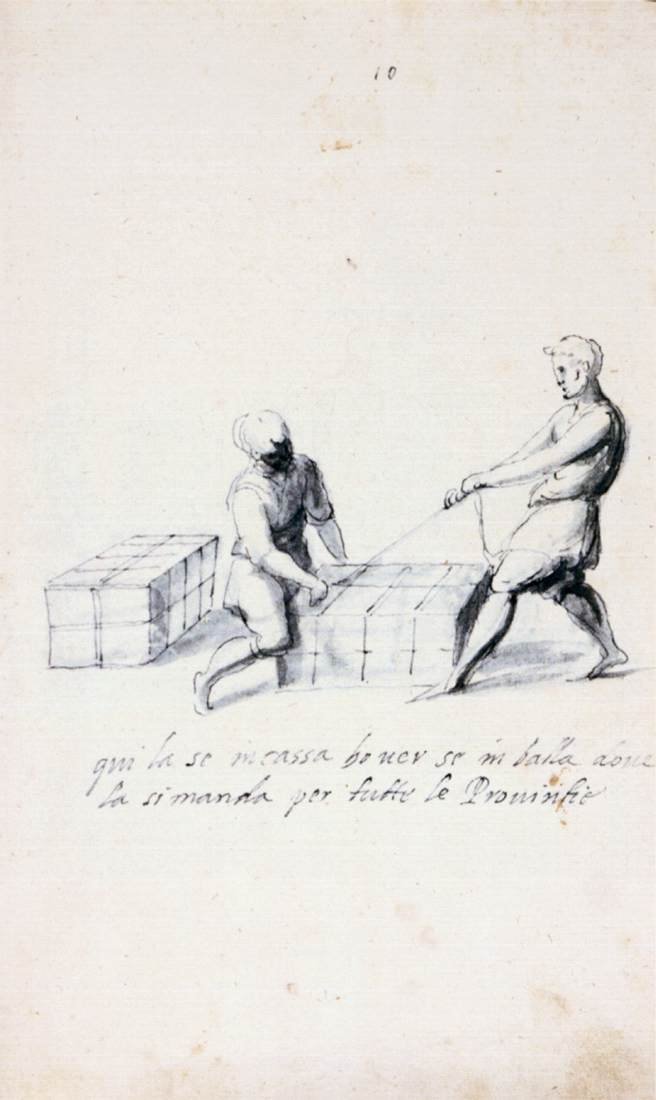 10
qui la se incassa houer se in balla doue
la si manda per tutte le Prouintie